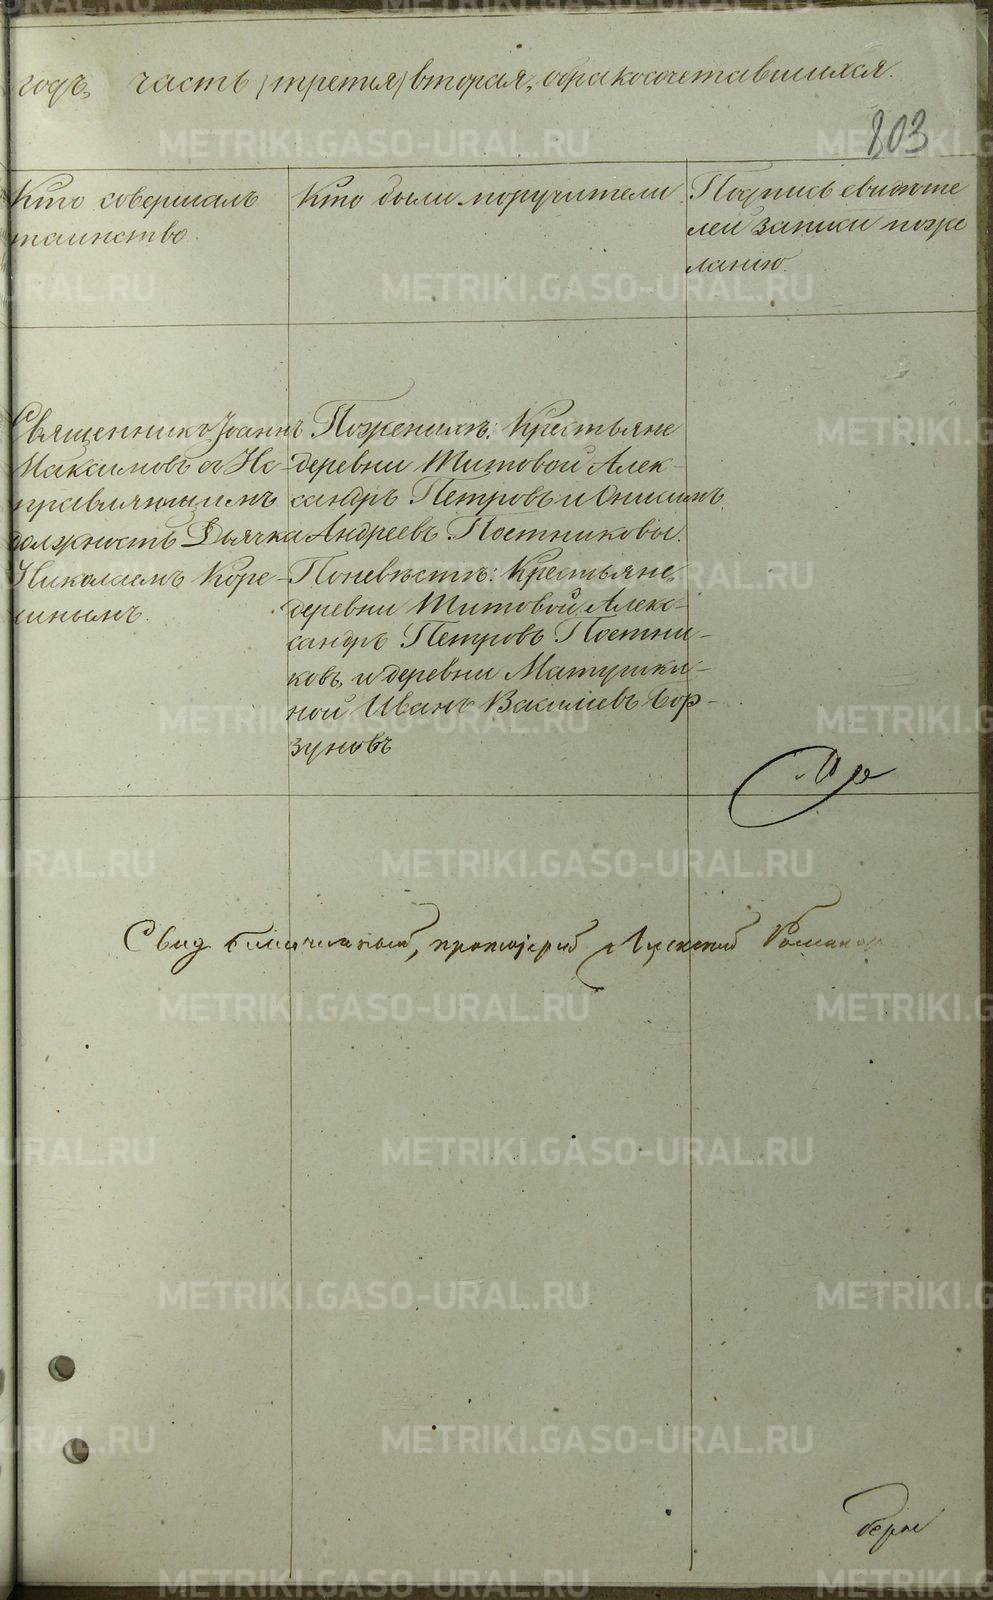 годъ, часть (третья) вторая, о бракосочетавшихся.
803
Кто совершалъ
таинство.
Кто были поручители
Подпись свидѣте
лей записи по же
ланію.
Священникъ Іоаннъ
Максимовъ съ Ис-
правляющимъ
должность Дьячка
Николаемъ Коре-
инымъ.
По женихѣ: Крестьяне
деревни Титовой Алек-
сандръ Петровъ и Онисимъ
Андреевъ Постниковы.
По невѣстѣ: Крестьяне,
деревни Титовой, Алек-
сандръ Петровъ Постни-
ковъ, и деревни Матушки-
ной Иванъ Василіевъ Бор-
зуновъ
Свид благочинный, протоіерей
METRIKI.GASO-URAL.RU